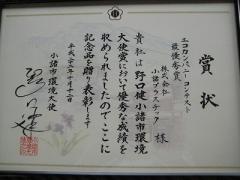 賞状
エコカンパニーコンテスト
最優秀賞
株式会社
小諸プラスチック 様
貴社は野口健小諸市環境
大使賞において優秀な成績を
収められましたのでここに
記念品を贈り表彰します
平成二十二年十月十六日
小諸市環境大使
野口健